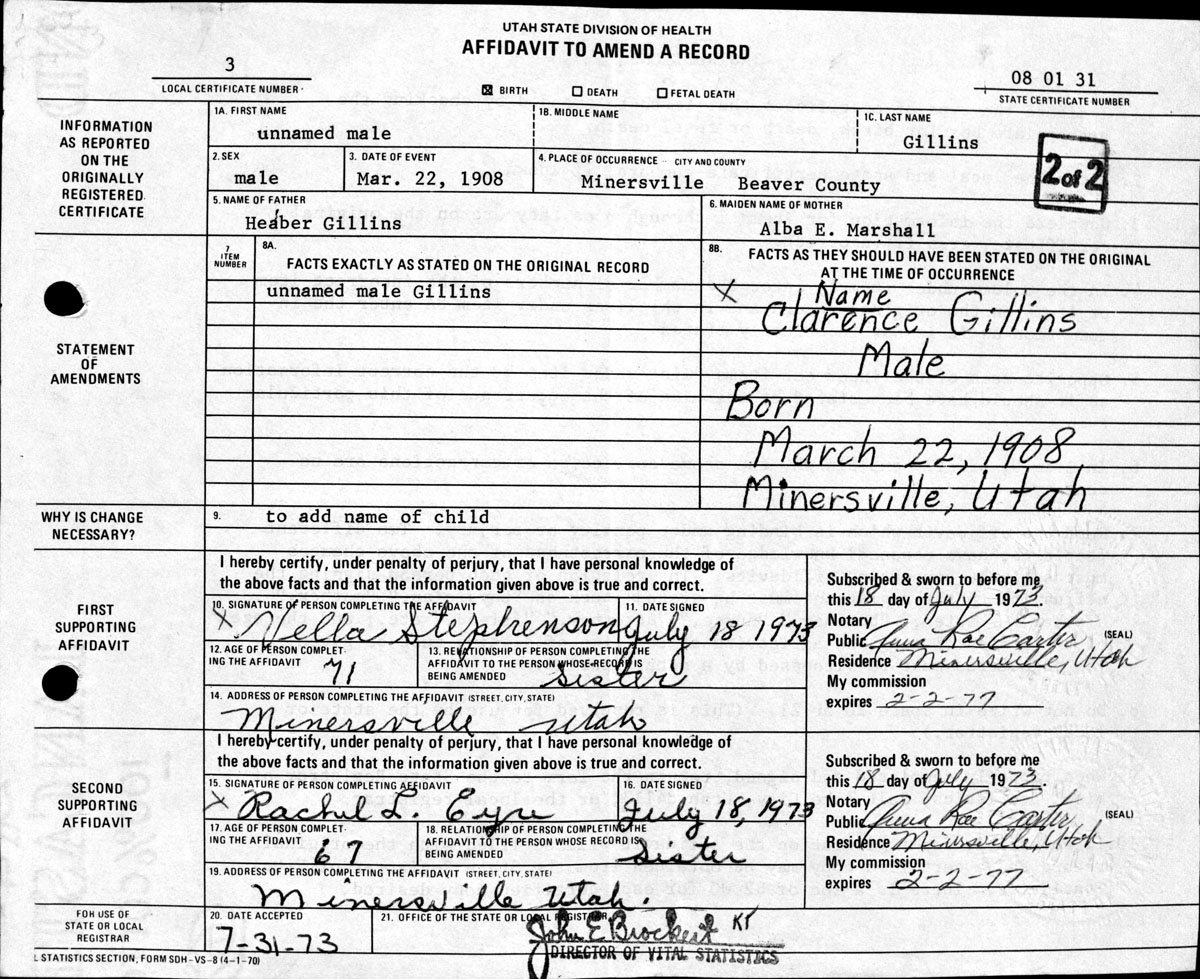 UTAH STATE DIVISION OF HEALTH
AFFIDAVIT TO AMEND A RECORD
3
LOCAL CERTIFICATE NUMBER
☒ BIRTH ☐ DEATH ☐ FETAL DEATH
08 01 31
STATE CERTIFICATE NUMBER
INFORMATION
AS REPORTED
ON THE
ORIGINALLY
REGISTERED
CERTIFICATE
1A. FIRST NAME
unnamed male
1B. MIDDLE NAME
1C. LAST NAME
Gillins
2 of 2
2. SEX
male
3. DATE OF EVENT
Mar. 22, 1908
4. PLACE OF OCCURRENCE - CITY AND COUNTY
Minersville Beaver County
5. NAME OF FATHER
Heaber Gillins
6. MAIDEN NAME OF MOTHER
Alba E. Marshall
STATEMENT
OF
AMENDMENTS
7
ITEM
NUMBER
8A.
FACTS EXACTLY AS STATED ON THE ORIGINAL RECORD
unnamed male Gillins
8B.
FACTS AS THEY SHOULD HAVE BEEN STATED ON THE ORIGINAL
AT THE TIME OF OCCURRENCE
X Name
Clarence Gillins
Male
Born
March 22, 1908
Minersville, Utah
WHY IS CHANGE
NECESSARY?
9. to add name of child
FIRST
SUPPORTING
AFFIDAVIT
I hereby certify, under penalty of perjury, that I have personal knowledge of
the above facts and that the information given above is true and correct.
10. SIGNATURE OF PERSON COMPLETING THE AFFIDAVIT
X Vella Stephenson
11. DATE SIGNED
July 18 1973
12. AGE OF PERSON COMPLET-
ING THE AFFIDAVIT
71
13. RELATIONSHIP OF PERSON COMPLETING THE
AFFIDAVIT TO THE PERSON WHOSE RECORD IS
BEING AMENDED
Sister
14. ADDRESS OF PERSON COMPLETING THE AFFIDAVIT (STREET, CITY, STATE)
Minersville Utah
Subscribed & sworn to before me
this 18 day of July 1973.
Notary
Public Anna Rae Carter (SEAL)
Residence Minersville, Utah
My commission
expires 2-2-77
SECOND
SUPPORTING
AFFIDAVIT
I hereby certify, under penalty of perjury, that I have personal knowledge of
the above facts and that the information given above is true and correct.
15. SIGNATURE OF PERSON COMPLETING AFFIDAVIT
X Rachel L. Eyre
16. DATE SIGNED
July 18, 1973
17. AGE OF PERSON COMPLET-
ING THE AFFIDAVIT
67
18. RELATIONSHIP OF PERSON COMPLETING THE
AFFIDAVIT TO THE PERSON WHOSE RECORD IS
BEING AMENDED
Sister
19. ADDRESS OF PERSON COMPLETING THE AFFIDAVIT (STREET, CITY, STATE)
Minersville Utah.
Subscribed & sworn to before me
this 18 day of July 1973.
Notary
Public Anna Rae Carter (SEAL)
Residence Minersville, Utah
My commission
expires 2-2-77
FOR USE OF
STATE OR LOCAL
REGISTRAR
20. DATE ACCEPTED
7-31-73
21. OFFICE OF THE STATE OR LOCAL REGISTRAR
John E Brockert KT
DIRECTOR OF VITAL STATISTICS
L STATISTICS SECTION, FORM SDH-VS-8 (4-1-70)